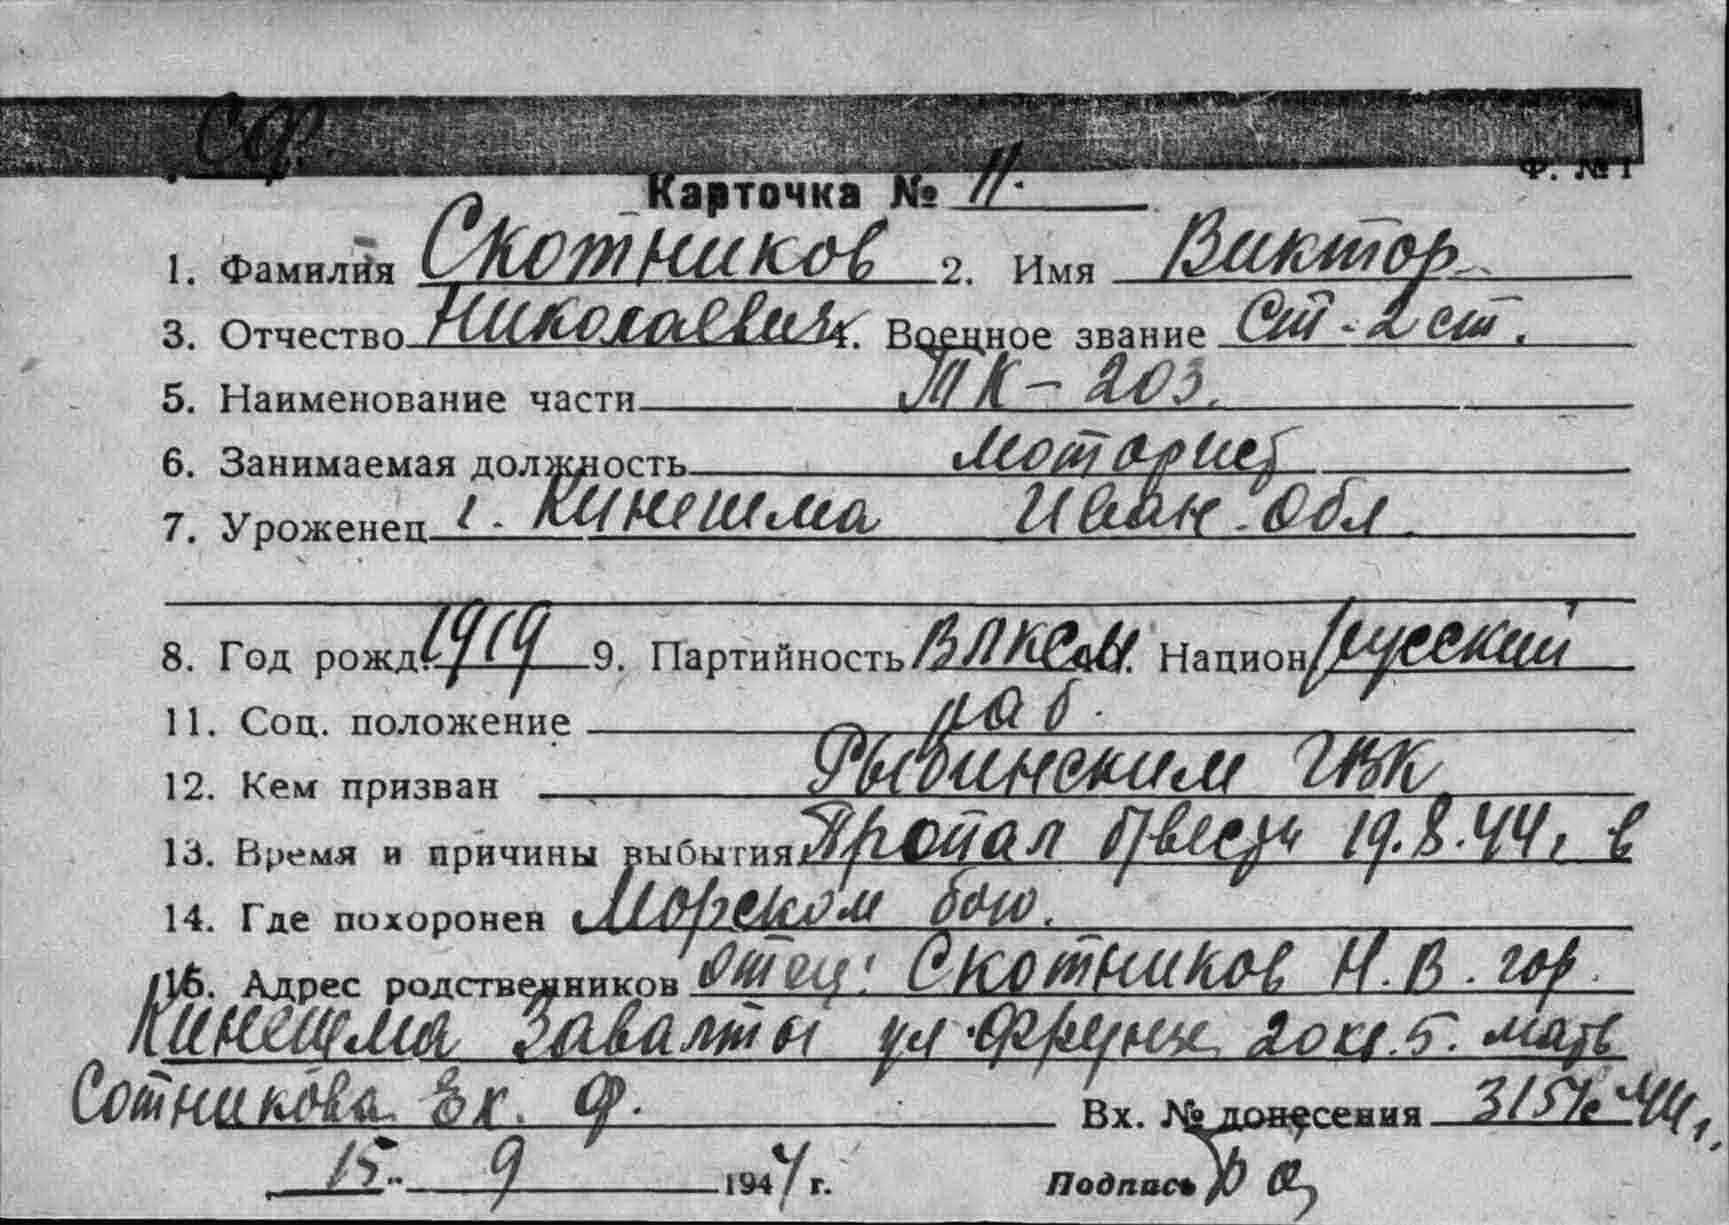 СФ.
Ф. № 1
Карточка № 11.
1. Фамилия Скотников 2. Имя Виктор
3. Отчество Николаевич 4. Военное звание Ст-2 ст.
5. Наименование части ТК-203.
6. Занимаемая должность моторист
7. Уроженец г. Кинешма Иван. Обл
8. Год рожд. 1919 9. Партийность ВЛКСМ. Национ русский
11. Соц. положение раб.
12. Кем призван Рыбинским ГВК
13. Время и причины выбытия Пропал б/вести 19.8.44г в
14. Где похоронен Морском бою.
15. Адрес родственников отец: Скотников Н.В. гор.
Кинешма ул. Фрунзе 20 кв. 5. мать
Сотникова Ек. Ф. Вх. № донесения 44 г.
15. 9 1944 г. Подпись